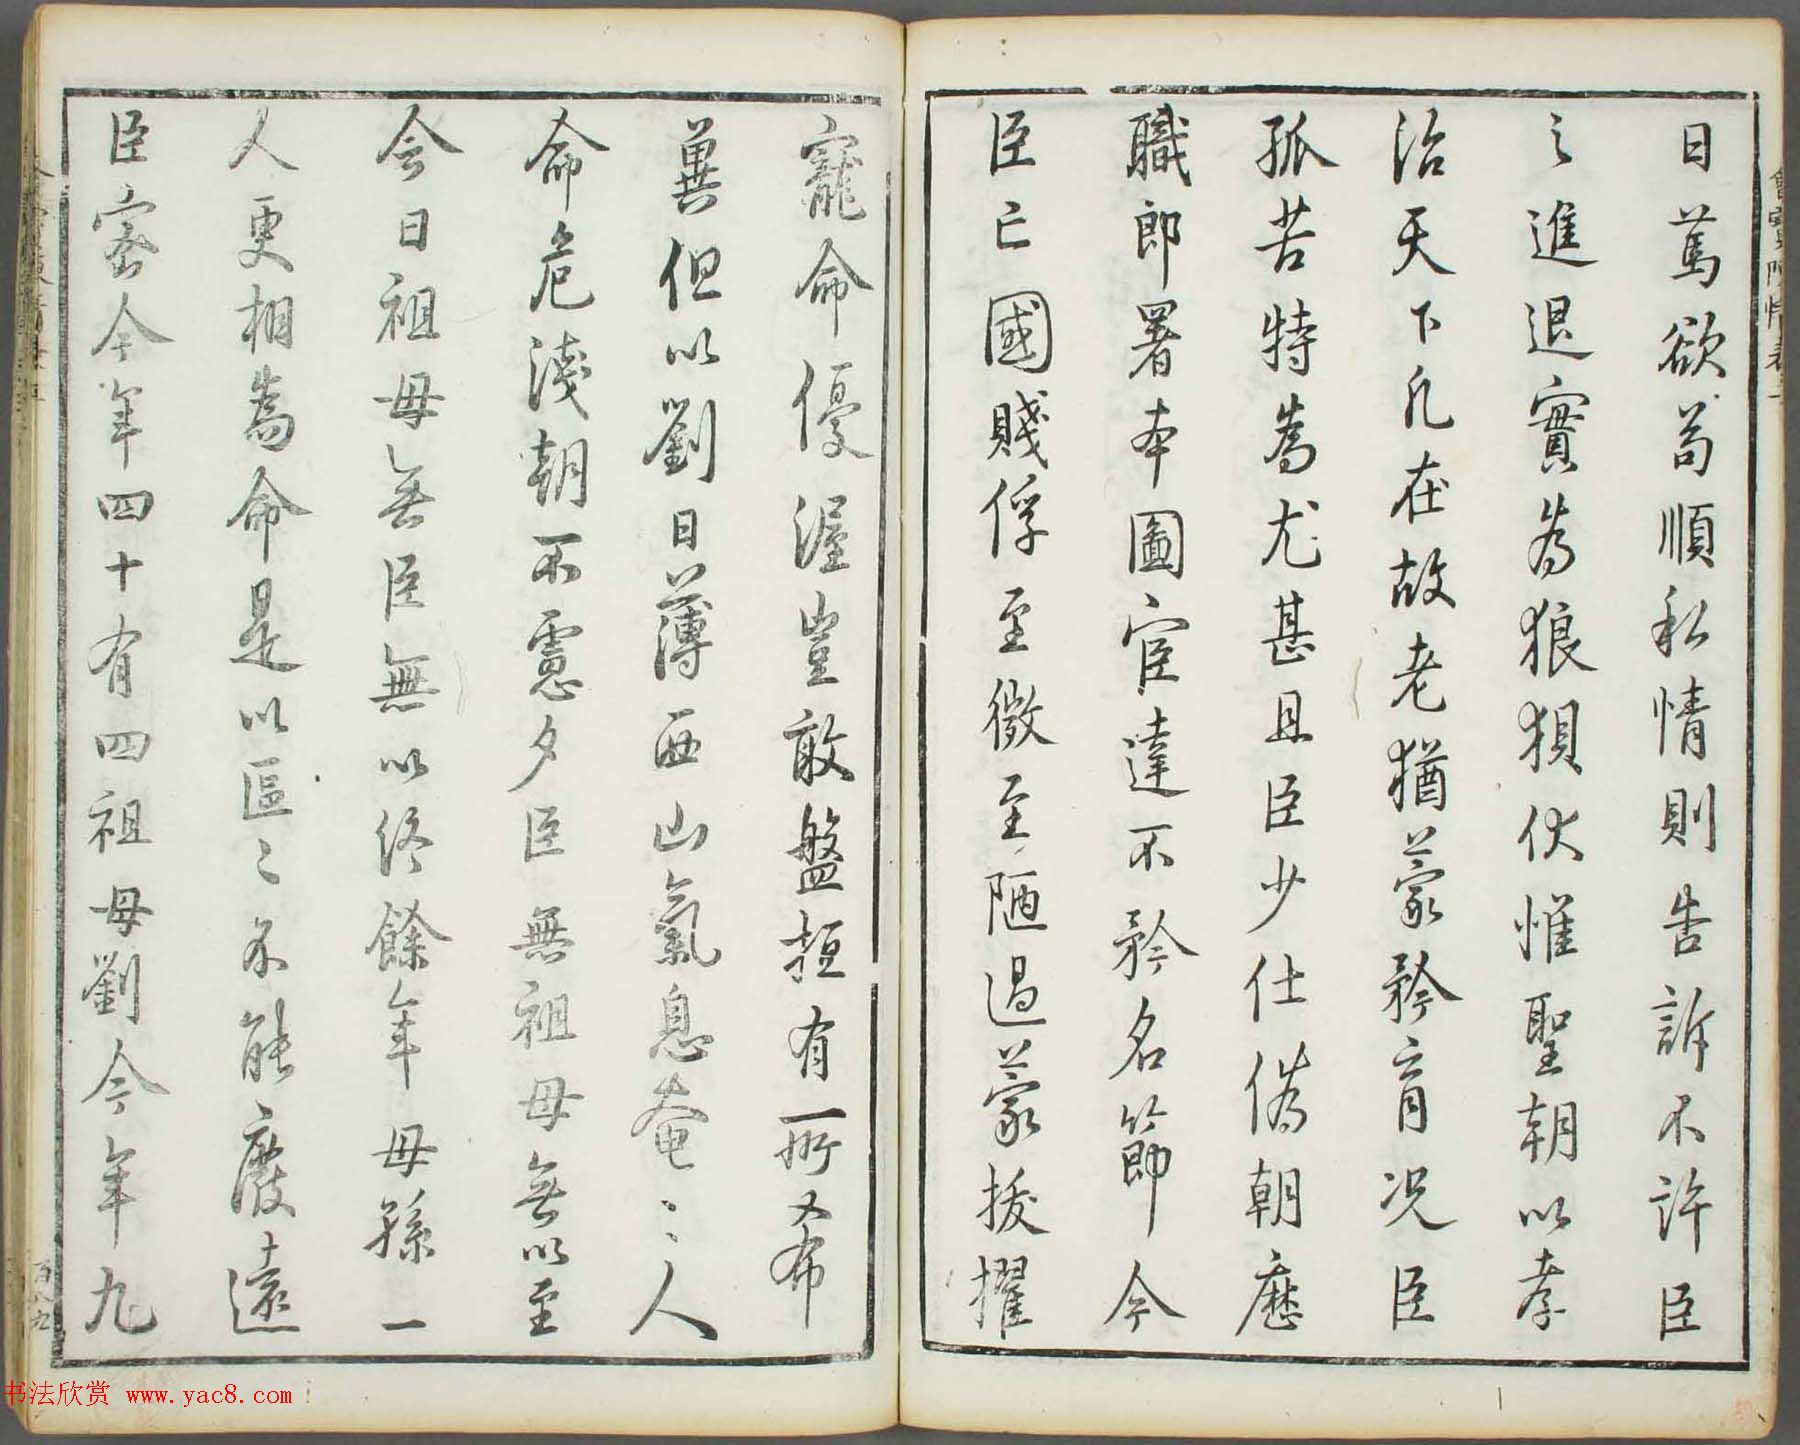 日篤欲苟順私情則告訴不許臣
之進退實為狼狽伏惟聖朝以孝
治天下凡在故老猶蒙矜育況臣
孤苦特為尤甚且臣少仕偽朝歷
職郎署本圖宦達不矜名節今
臣亡國賤俘至微至陋過蒙拔擢
寵命優渥豈敢盤桓有所希
冀但以劉日薄西山氣息奄〻人
命危淺朝不慮夕臣無祖母無以至
今日祖母無臣無以終餘年母孫一
人更相為命是以區〻不能廢遠
臣密今年四十有四祖母劉今年九
百八九
书法欣赏 www.yac8.com